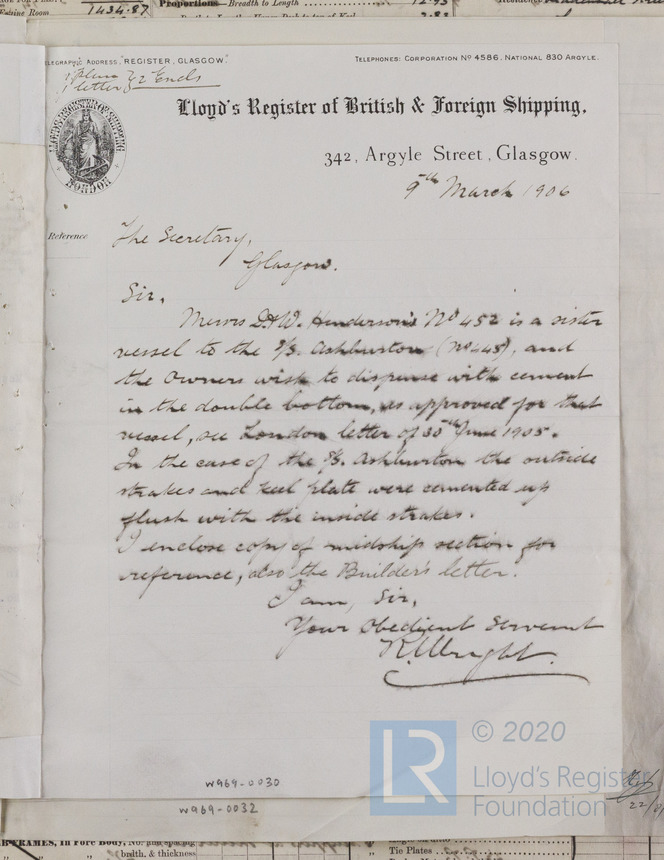 1434.87
Proportions—Breadth to Length
12.93
Engine Room
TELEGRAPHIC ADDRESS, "REGISTER, GLASGOW."
TELEPHONES: CORPORATION Nº 4586. NATIONAL 830 ARGYLE.
1 plan } 2 Encls
1 letter }
Lloyd's Register of British & Foreign Shipping,
342, Argyle Street, Glasgow.
LLOYD'S REGISTER OF SHIPPING
LONDON
9th March 1906
Reference
The Secretary,
Glasgow.
Sir,
Messrs D&W. Henderson's No 452 is a sister
vessel to the S/S. Ashburton (No 448), and
the Owners wish to dispense with cement
in the double bottom, as approved for that
vessel, see London letter of 30th June 1905.
In the case of the S/S. Ashburton the outside
strakes and keel plate were cemented up
flush with the inside strakes.
I enclose copy of midship section for
reference, also the Builder's letter.
I am, Sir,
Your Obedient Servant
R. Wright.
© 2020
LR
Lloyd's Register
Foundation
W969-0030
W969-0032
FRAMES, in Fore Body,
breadth, & thickness
Tie Plates